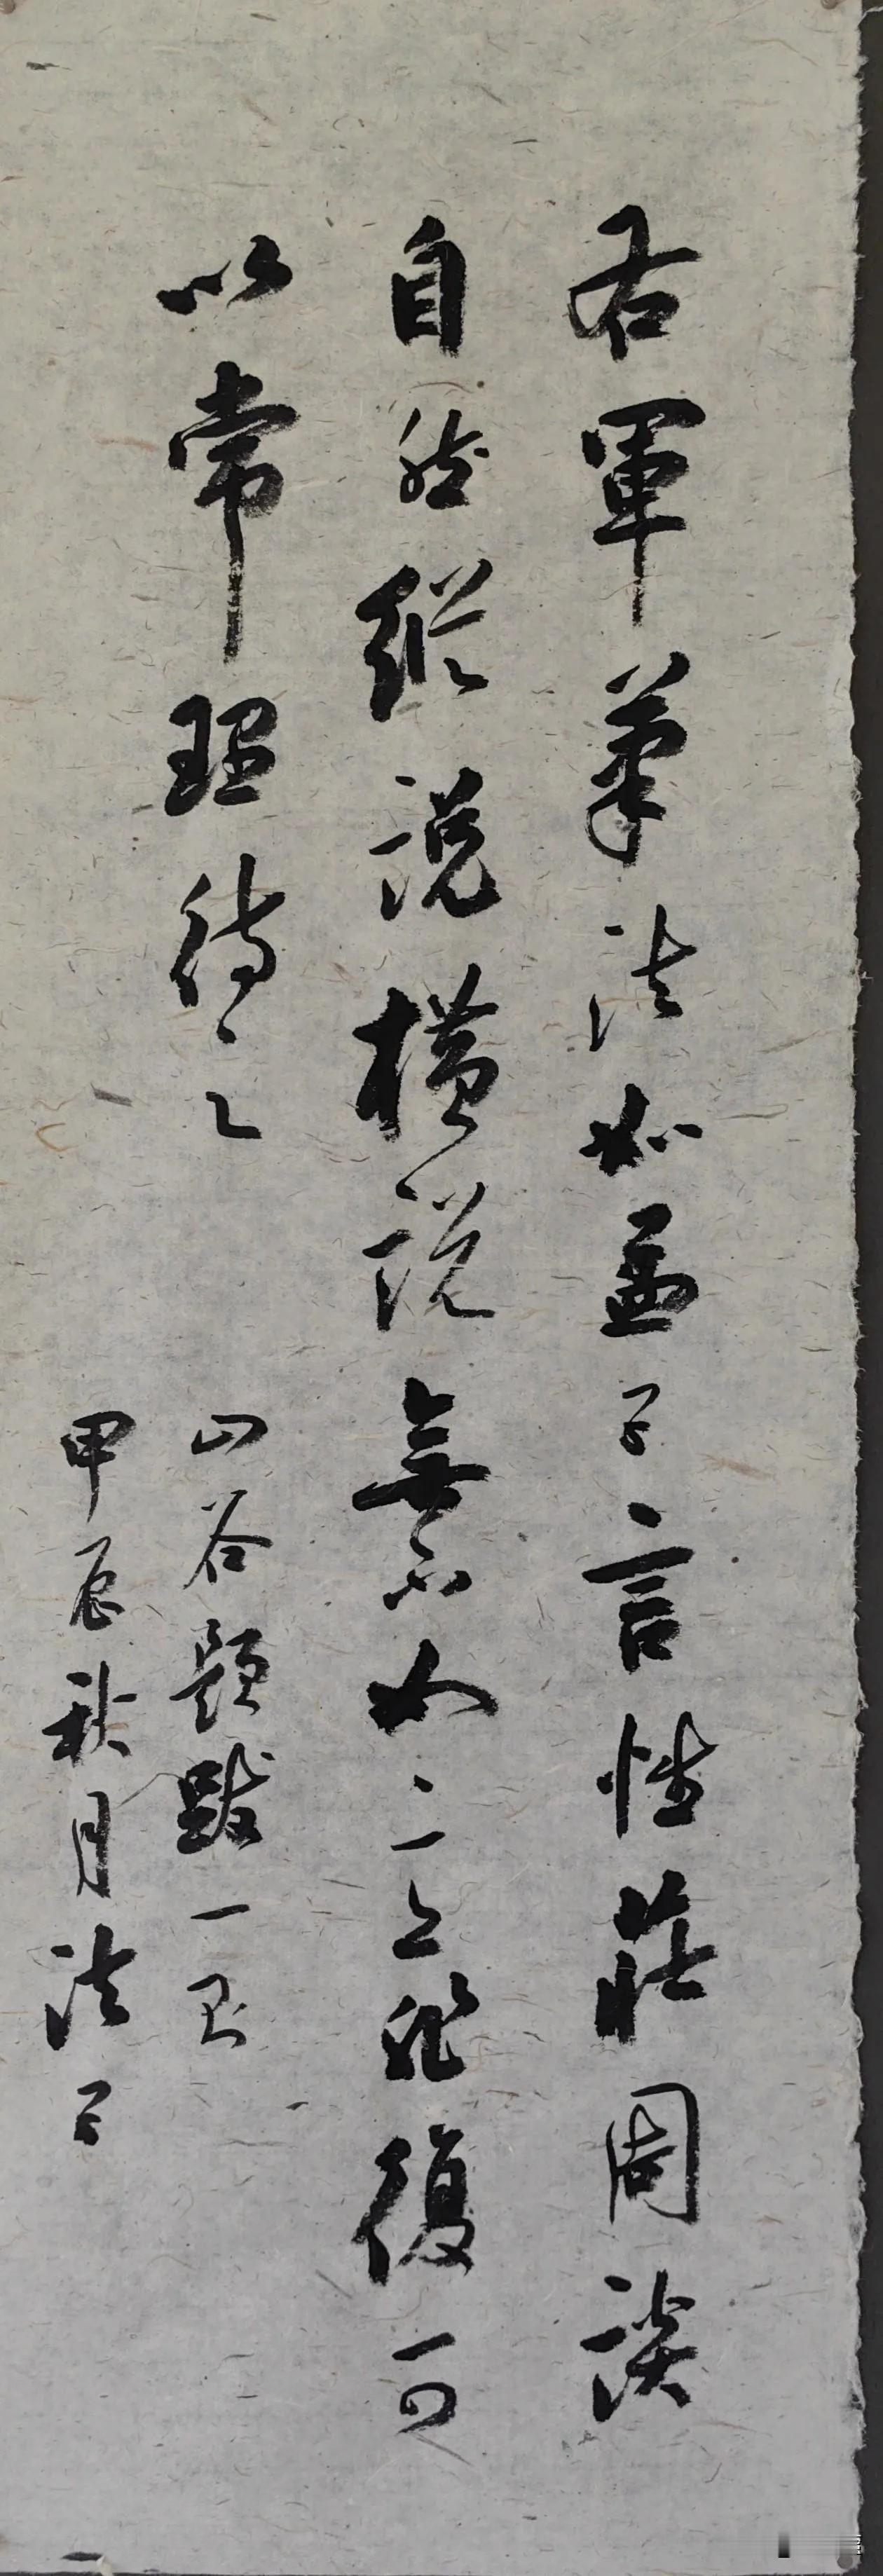 右軍筆法如孟子言性莊周談
自然縱説橫説無不如意非復可
以常理待之
山谷題跋一則
甲辰秋月法子